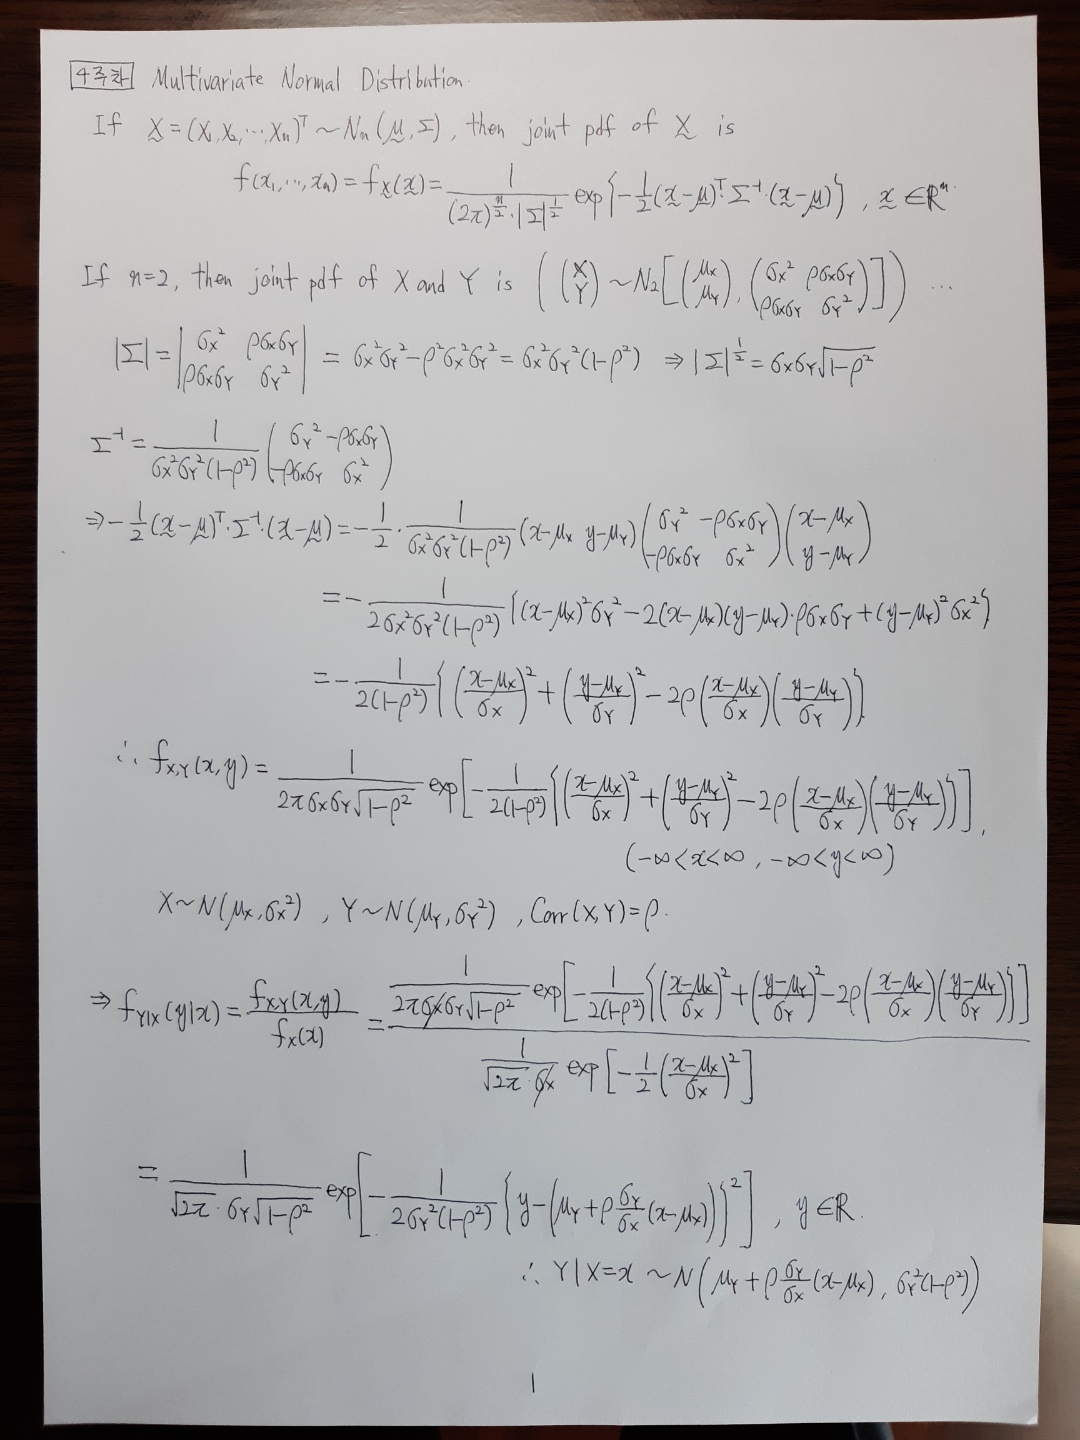 4주차 Multivariate Normal Distribution.
If X̰ = (X₁, X₂, ⋯, Xₙ)ᵀ ~ Nₙ(μ̰, Σ), then joint pdf of X̰ is
f(x₁, ⋯, xₙ) = f_X̰(x̰) = \frac{1}{(2π)^{\frac{n}{2}}·|Σ|^{\frac{1}{2}}} exp{-\frac{1}{2}(x̰-μ̰)ᵀ·Σ⁻¹·(x̰-μ̰)}, x̰ ∈ ℝⁿ.
If n=2, then joint pdf of X and Y is ( \begin{pmatrix} X \\ Y \end{pmatrix} ~ N₂[ \begin{pmatrix} μ_X \\ μ_Y \end{pmatrix}, \begin{pmatrix} σ_X² & ρσ_Xσ_Y \\ ρσ_Xσ_Y & σ_Y² \end{pmatrix} ] ) ⋯
|Σ| = \begin{vmatrix} σ_X² & ρσ_Xσ_Y \\ ρσ_Xσ_Y & σ_Y² \end{vmatrix} = σ_X²σ_Y² - ρ²σ_X²σ_Y² = σ_X²σ_Y²(1-ρ²) ⇒ |Σ|^{\frac{1}{2}} = σ_Xσ_Y\sqrt{1-ρ²}
Σ⁻¹ = \frac{1}{σ_X²σ_Y²(1-ρ²)} \begin{pmatrix} σ_Y² & -ρσ_Xσ_Y \\ -ρσ_Xσ_Y & σ_X² \end{pmatrix}
⇒ -\frac{1}{2}(x̰-μ̰)ᵀ·Σ⁻¹·(x̰-μ̰) = -\frac{1}{2}·\frac{1}{σ_X²σ_Y²(1-ρ²)} (x-μ_X y-μ_Y) \begin{pmatrix} σ_Y² & -ρσ_Xσ_Y \\ -ρσ_Xσ_Y & σ_X² \end{pmatrix} \begin{pmatrix} x-μ_X \\ y-μ_Y \end{pmatrix}
= -\frac{1}{2σ_X²σ_Y²(1-ρ²)} {(x-μ_X)²σ_Y² - 2(x-μ_X)(y-μ_Y)·ρσ_Xσ_Y + (y-μ_Y)²σ_X²}
= -\frac{1}{2(1-ρ²)} {(\frac{x-μ_X}{σ_X})² + (\frac{y-μ_Y}{σ_Y})² - 2ρ(\frac{x-μ_X}{σ_X})(\frac{y-μ_Y}{σ_Y})}
∴ f_{X,Y}(x,y) = \frac{1}{2πσ_Xσ_Y\sqrt{1-ρ²}} exp[-\frac{1}{2(1-ρ²)} {(\frac{x-μ_X}{σ_X})² + (\frac{y-μ_Y}{σ_Y})² - 2ρ(\frac{x-μ_X}{σ_X})(\frac{y-μ_Y}{σ_Y})}],
(-∞<x<∞, -∞<y<∞)
X~N(μ_X, σ_X²), Y~N(μ_Y, σ_Y²), Corr(X,Y)=ρ.
⇒ f_{Y|X}(y|x) = \frac{f_{X,Y}(x,y)}{f_X(x)} = \frac{\frac{1}{2πσ_Xσ_Y\sqrt{1-ρ²}} exp[-\frac{1}{2(1-ρ²)} {(\frac{x-μ_X}{σ_X})² + (\frac{y-μ_Y}{σ_Y})² - 2ρ(\frac{x-μ_X}{σ_X})(\frac{y-μ_Y}{σ_Y})}]}{\frac{1}{\sqrt{2π}·σ_X} exp[-\frac{1}{2}(\frac{x-μ_X}{σ_X})²]}
= \frac{1}{\sqrt{2π}·σ_Y\sqrt{1-ρ²}} exp[-\frac{1}{2σ_Y²(1-ρ²)} {y-(μ_Y+ρ\frac{σ_Y}{σ_X}(x-μ_X))}²], y∈ℝ.
∴ Y|X=x ~ N(μ_Y+ρ\frac{σ_Y}{σ_X}(x-μ_X), σ_Y²(1-ρ²))
1